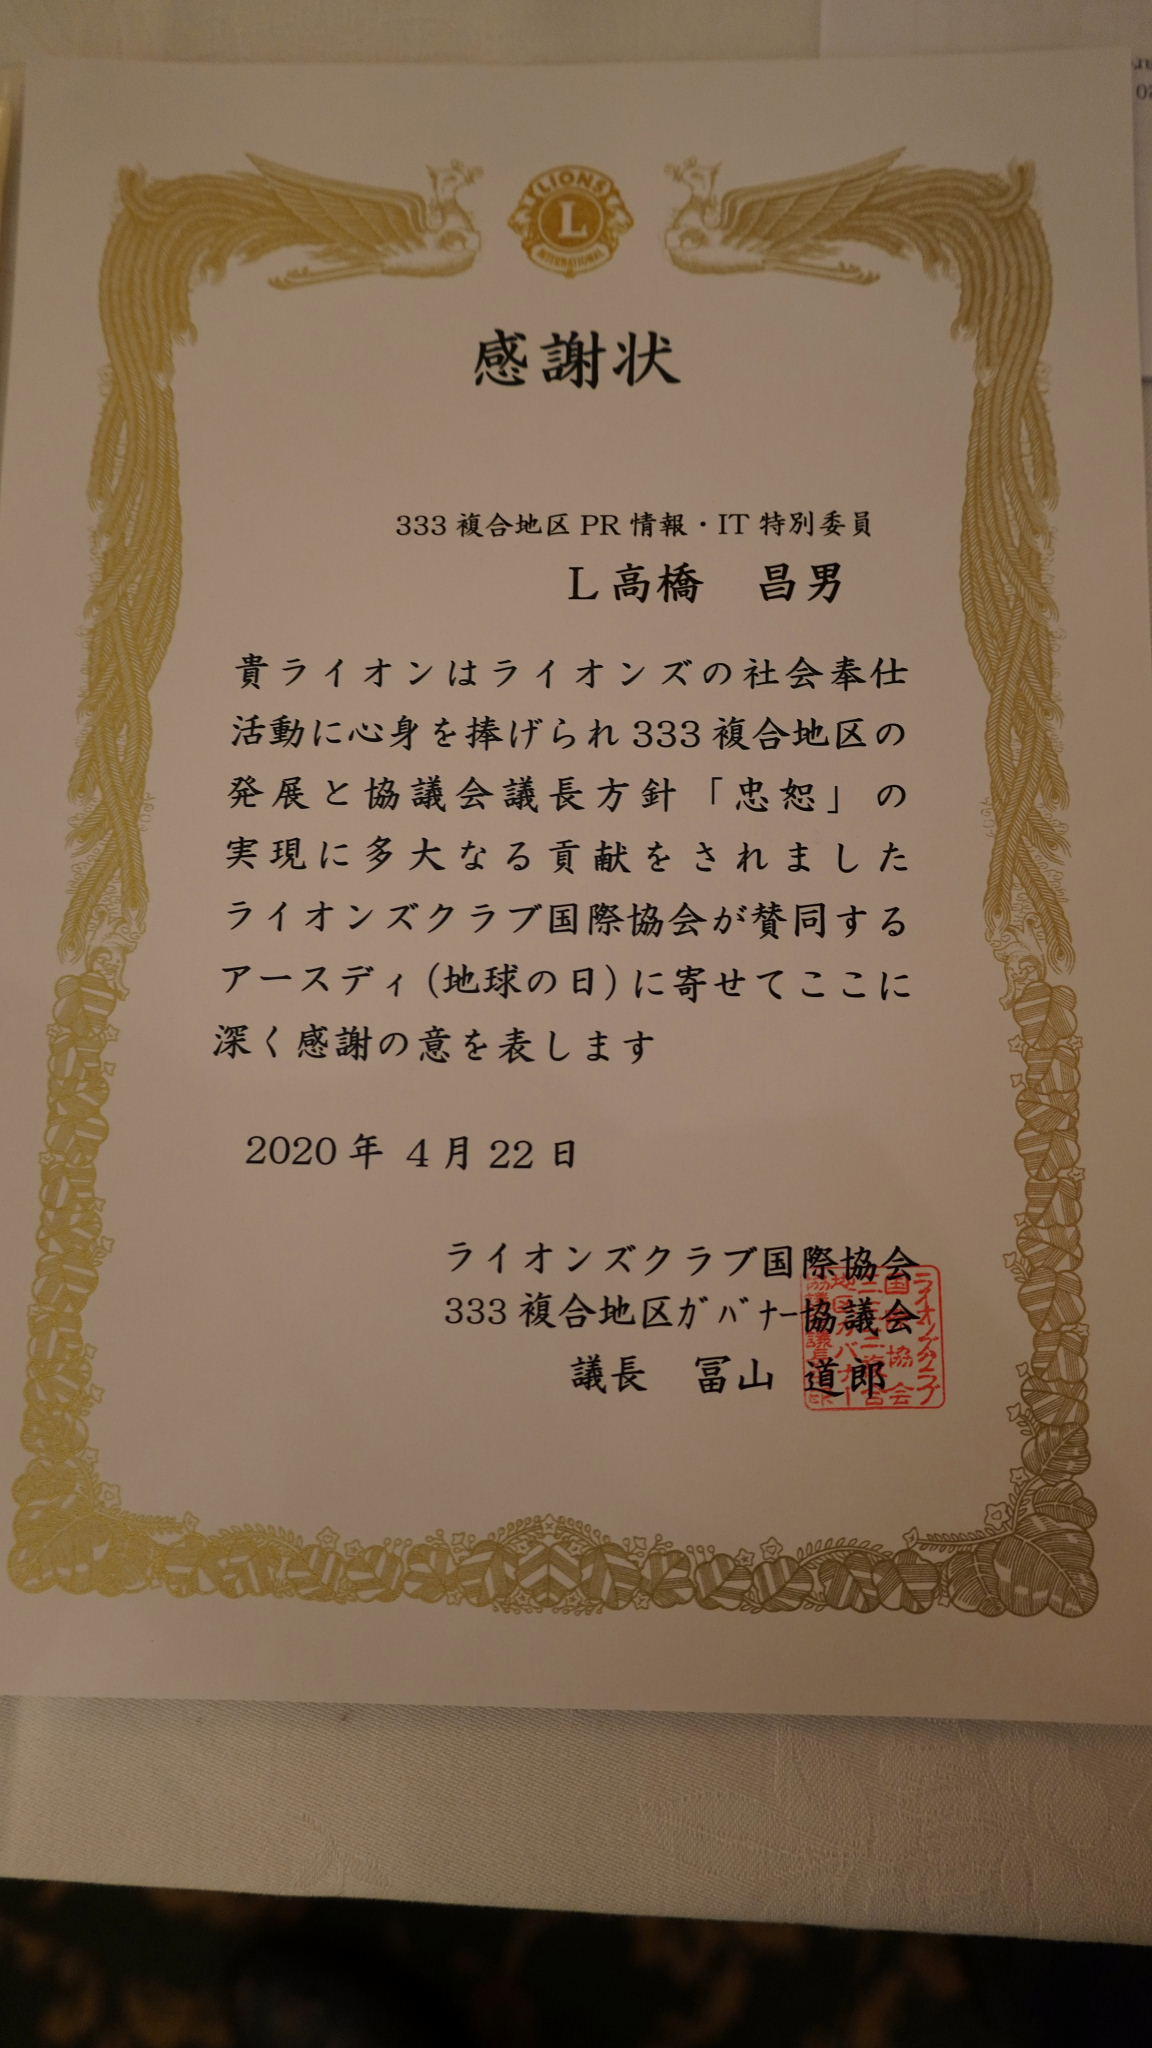 LIONS
L
INTERNATIONAL
感謝状
333 複合地区 PR 情報・IT 特別委員
L 高橋　昌男
貴ライオンはライオンズの社会奉仕
活動に心身を捧げられ 333 複合地区の
発展と協議会議長方針「忠恕」の
実現に多大なる貢献をされました
ライオンズクラブ国際協会が賛同する
アースディ(地球の日)に寄せてここに
深く感謝の意を表します
2020 年 4 月 22 日
ライオンズクラブ国際協会
333 複合地区ｶﾞﾊﾞﾅｰ協議会
議長　冨山　道郎
ライオンズクラブ
国際協会